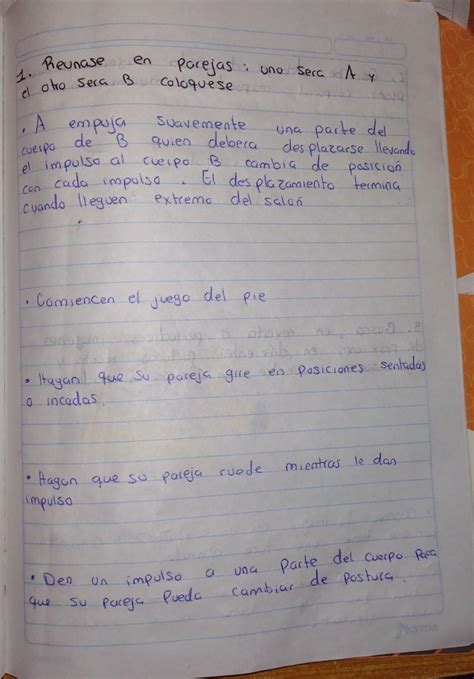 1. Reunase en parejas: uno sera A y
el otro sera B coloquese
• A empuja suavemente una parte del
cuerpo de B quien debera desplazarse llevando
el impulso al cuerpo B cambia de posición
con cada impulso. El desplazamiento termina
cuando lleguen extremo del salón
• Comiencen el juego del pie
• Hagan que su pareja gire en posiciones sentadas
o incadas.
• Hagan que su pareja ruede mientras le dan
impulso
• Den un impulso a una parte del cuerpo para
que su pareja pueda cambiar de postura.
Norma